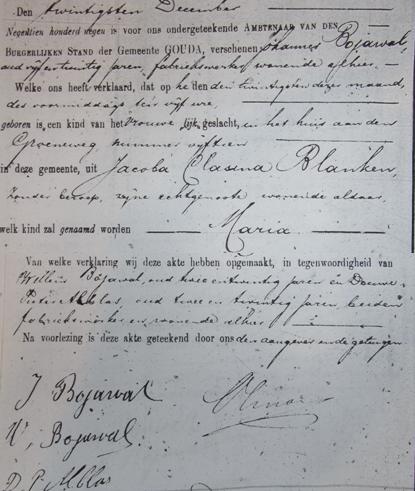 Den twintigsten December
Negentien honderd negen is voor ons ondergeteekende AMBTENAAR VAN DEN
BURGERLIJKEN STAND der Gemeente GOUDA, verschenen Johannes Bojarval,
oud vijf en twintig jaren, fabriekswerker wonende alhier. —
Welke ons heeft verklaard, dat op heden den twintigsten dezer maand,
des voormiddags te vijf ure,
geboren is, een kind van het vrouwelijk, geslacht, in het huis aan den
Groeneweg, nummer vijftien
in deze gemeente, uit Jacoba Clasina Blanken,
zonder beroep, zijne echtgenoote wonende aldaar.
welk kind zal genaamd worden — Maria. —
Van welke verklaring wij deze akte hebben opgemaakt, in tegenwoordigheid van
Willem Bojarval, oud twee en twintig jaren en Douwe
Pieter Mblas, oud twee en twintig jaren, beiden
fabriekswerker wonende alhier
Na voorlezing is deze akte geteekend door ons den aangever en de getuigen
J Bojarval
W, Bojarval.
D. P. Mblas